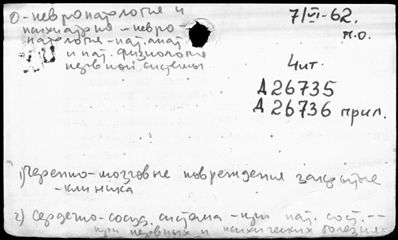 0-невропатология и
психиатрия - невро
патология - пат. анат.
и пат. физиология
нервной системы
7/VI-62.
М.О.
Чит.
Д26735
Д26736 прил.
1) Черепно-мозговые повреждения закрытые
- клиника
2) Сердечно-сосуд. система - при пат. сост. --
при нервных и психических болезнях